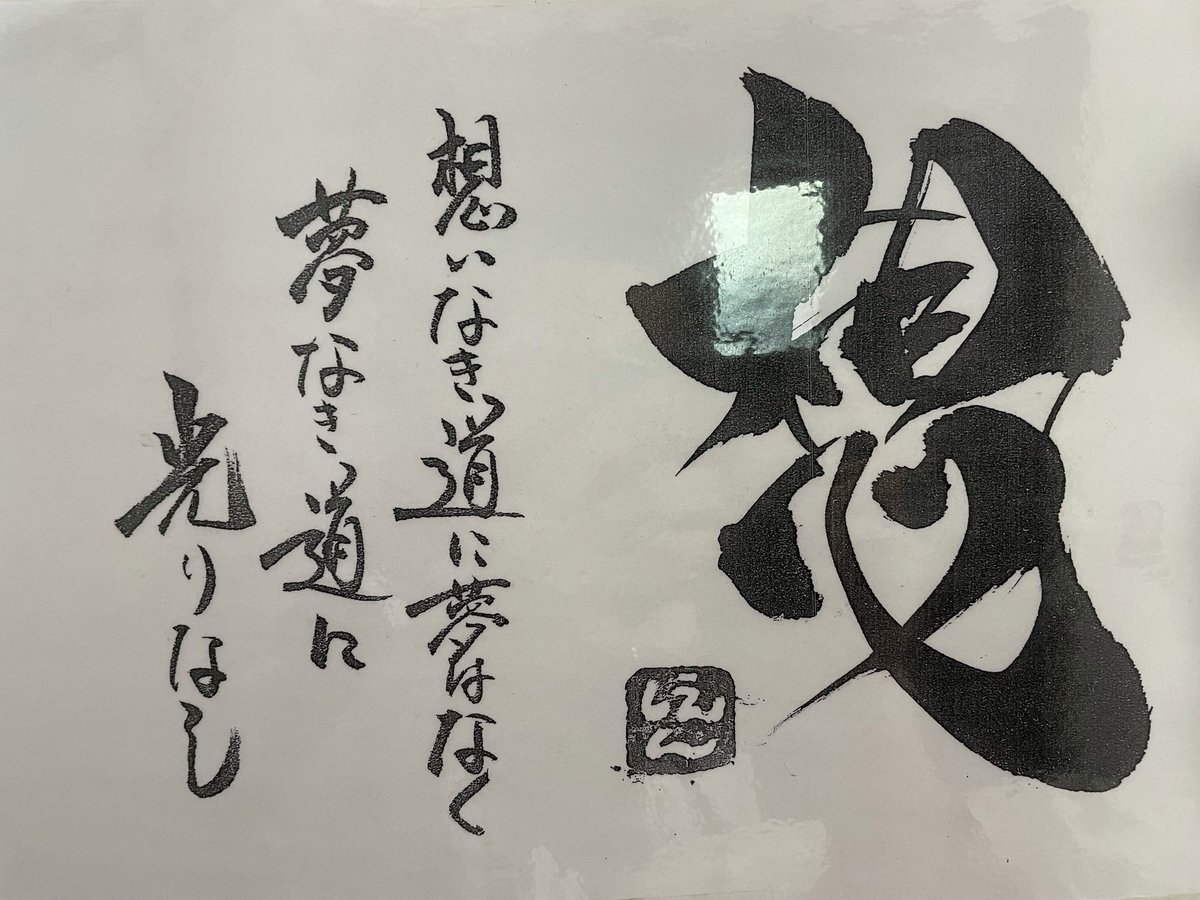 想
想いなき道に夢はなく
夢なき道に
光りなし